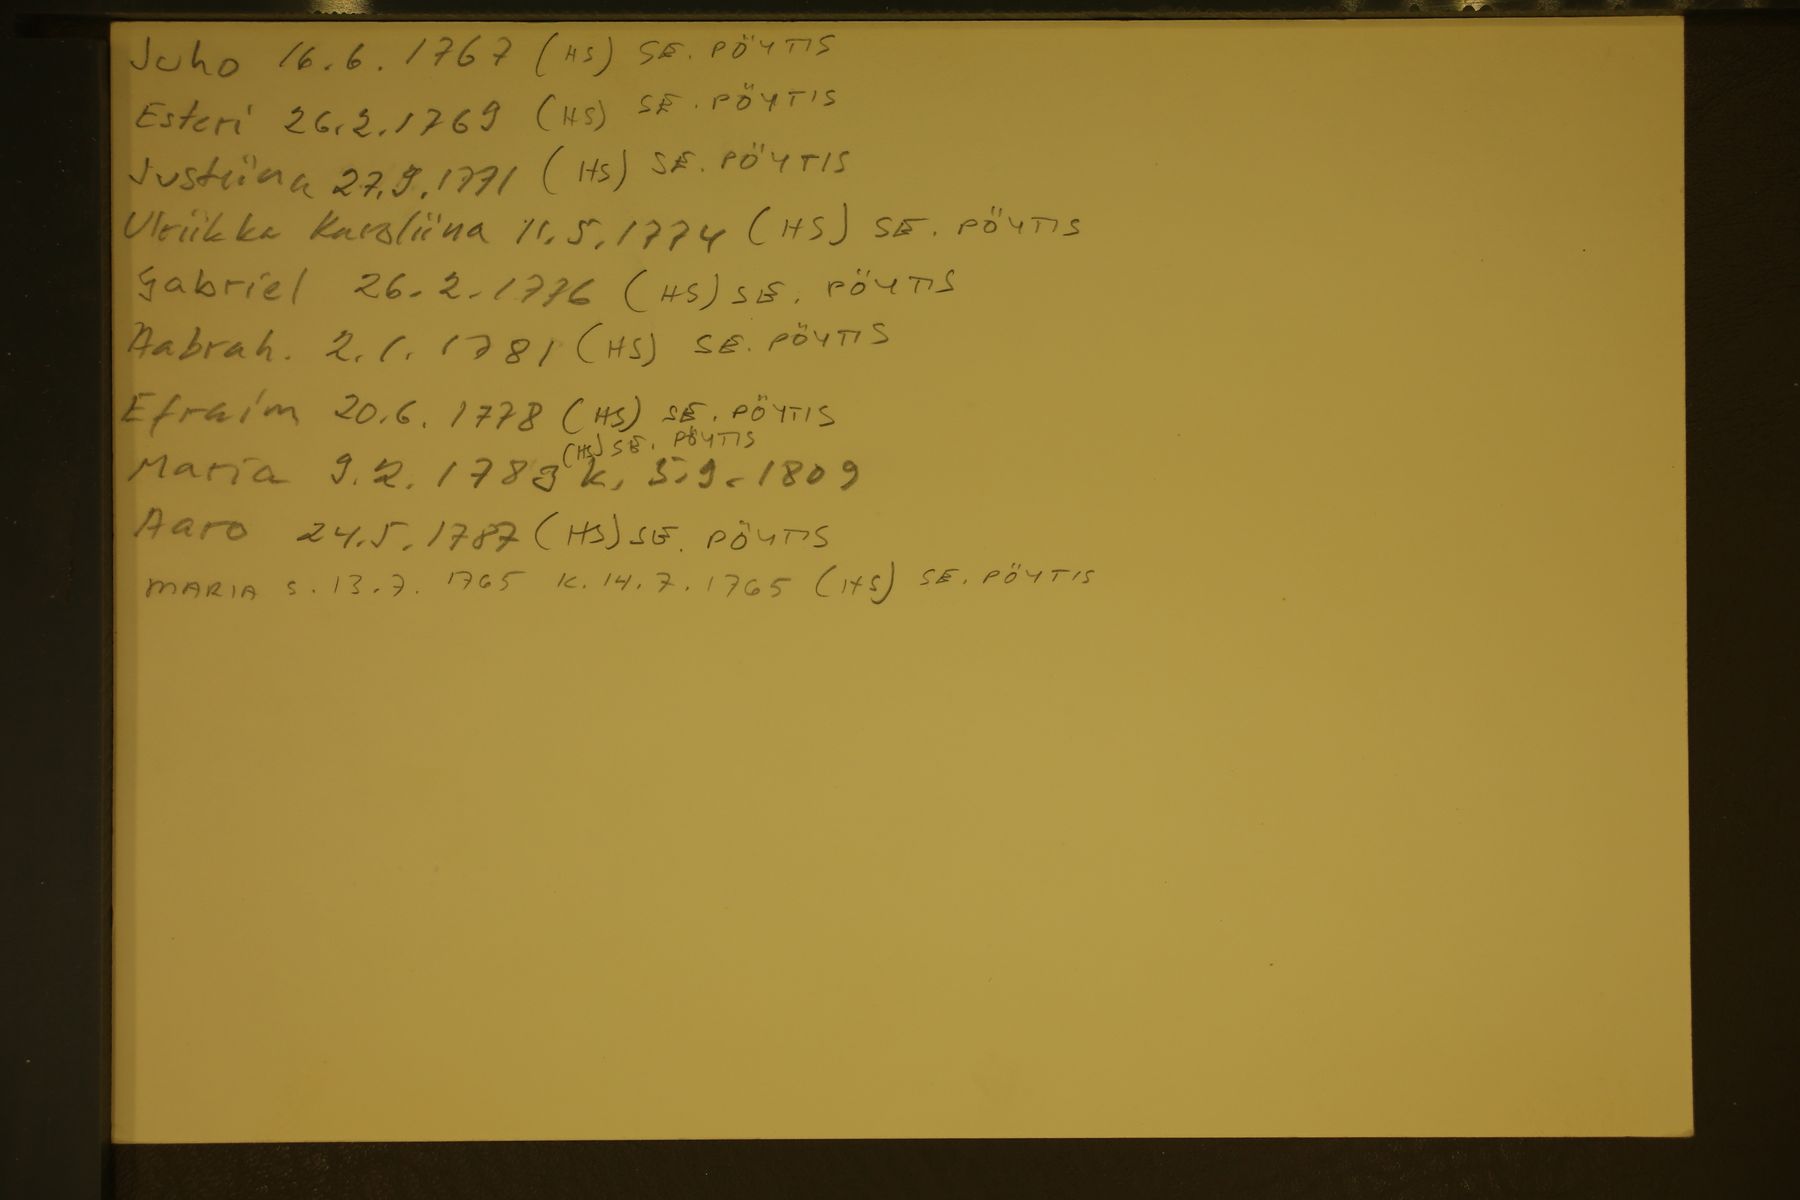 Juho 16.6.1767 (HS) SE. PÖYTIS
Esteri 26.2.1769 (HS) SE. PÖYTIS
Justiina 27.9.1771 (HS) SE. PÖYTIS
Ulriikka Karoliina 11.5.1774 (HS) SE. PÖYTIS
Gabriel 26.2.1776 (HS) SE. PÖYTIS
Aabrah. 2.1.1781 (HS) SE. PÖYTIS
Efraim 20.6.1778 (HS) SE. PÖYTIS
(HS) SE. PÖYTIS
Maria 9.2.1783 k. 5.9.1809
Aaro 24.5.1787 (HS) SE. PÖYTIS
MARIA S. 13.7.1765 K. 14.7.1765 (HS) SE. PÖYTIS